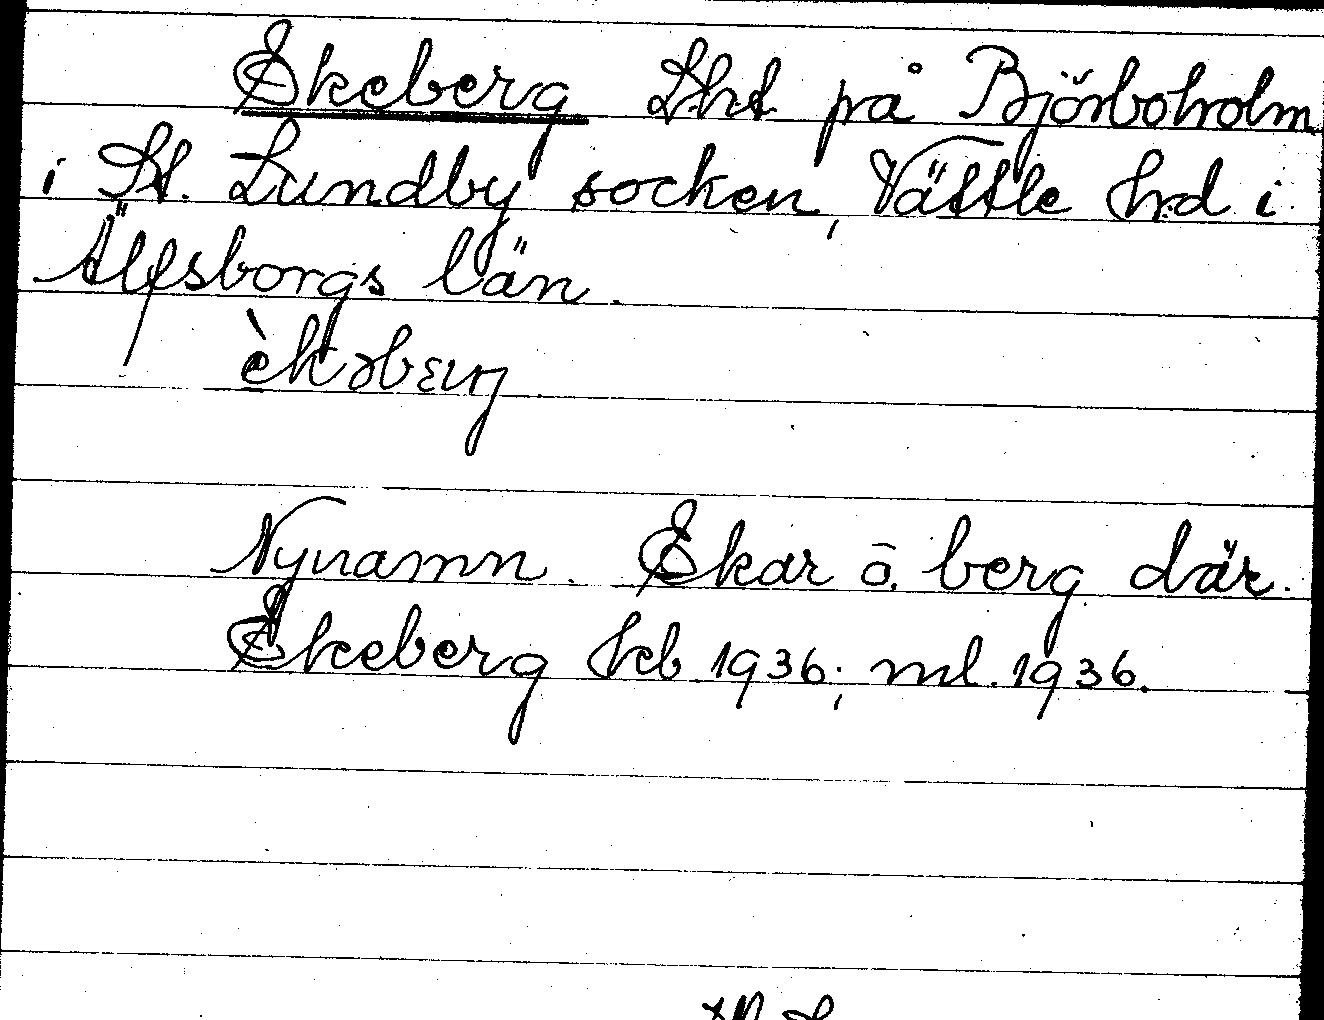 Ekeberg Lht på Björboholm
i St. Lundby socken, Vättle hd i
Älfsborgs län.
èkəbærj
Nynamn. Ekar o. berg där.
Ekeberg kb 1936; ml. 1936.